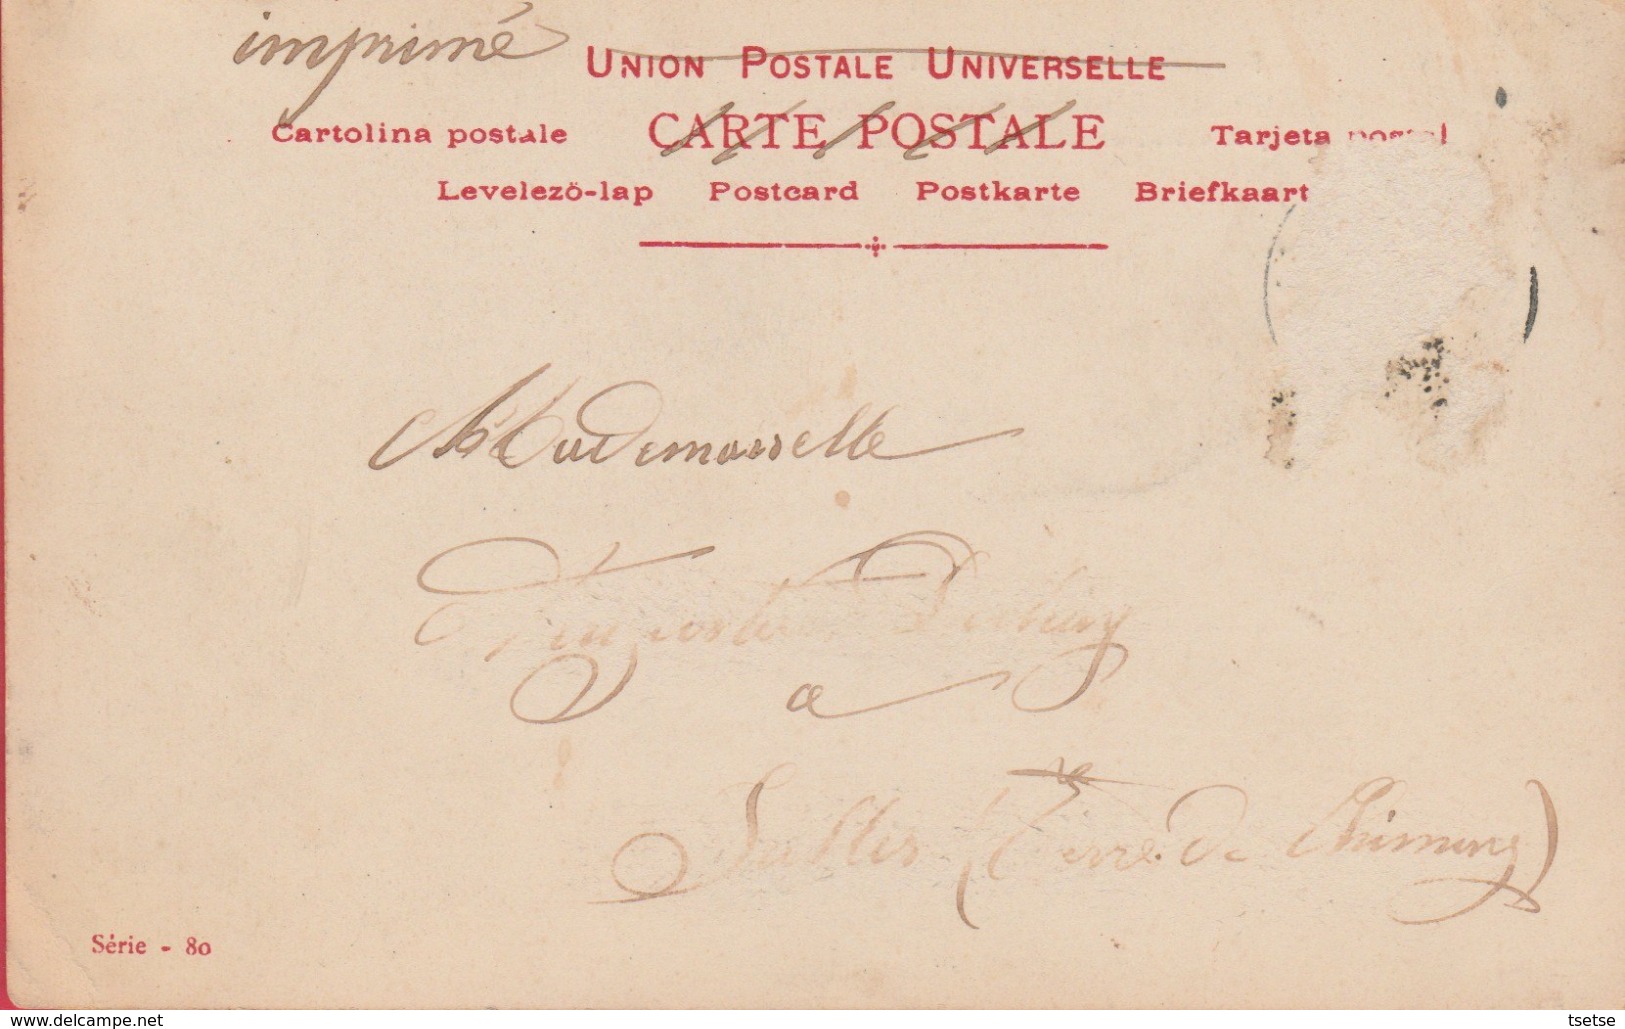 imprimé
UNION POSTALE UNIVERSELLE
Cartolina postale CARTE POSTALE Tarjeta postal
Levelezö-lap Postcard Postkarte Briefkaart
Mademoiselle
a
(Terre de Chimay)
Série - 80
www.delcampe.net tsetse